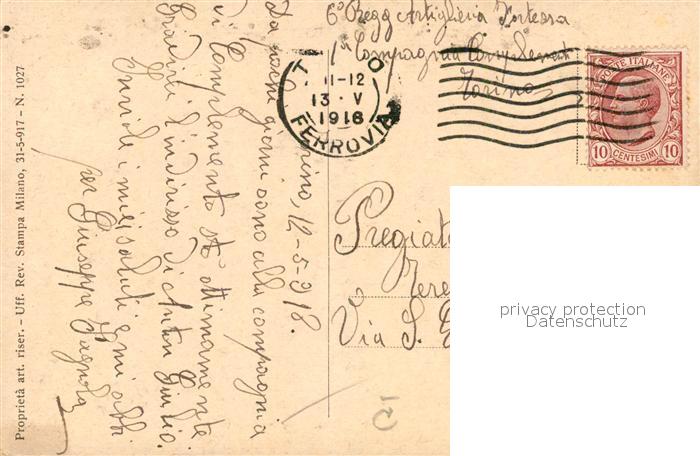 6° Regg Artiglieria Fortezza
1a Compagnia Complementi
Torino
T O
11-12
13 · V
1918
FERROVIA
POSTE ITALIANE
10 CENTESIMI 10
Torino, 12-5-918.
Da pochi giorni sono alla compagnia
di Complemento sto ottimamente
Gradirei l'indirizzo di Giulio.
Invio i miei saluti e mi abbi
per Giuseppe
Pregiat
Via S.
15
Proprietà art. riser. – Uff. Rev. Stampa Milano, 31-5-917 – N. 1027
privacy protection
Datenschutz